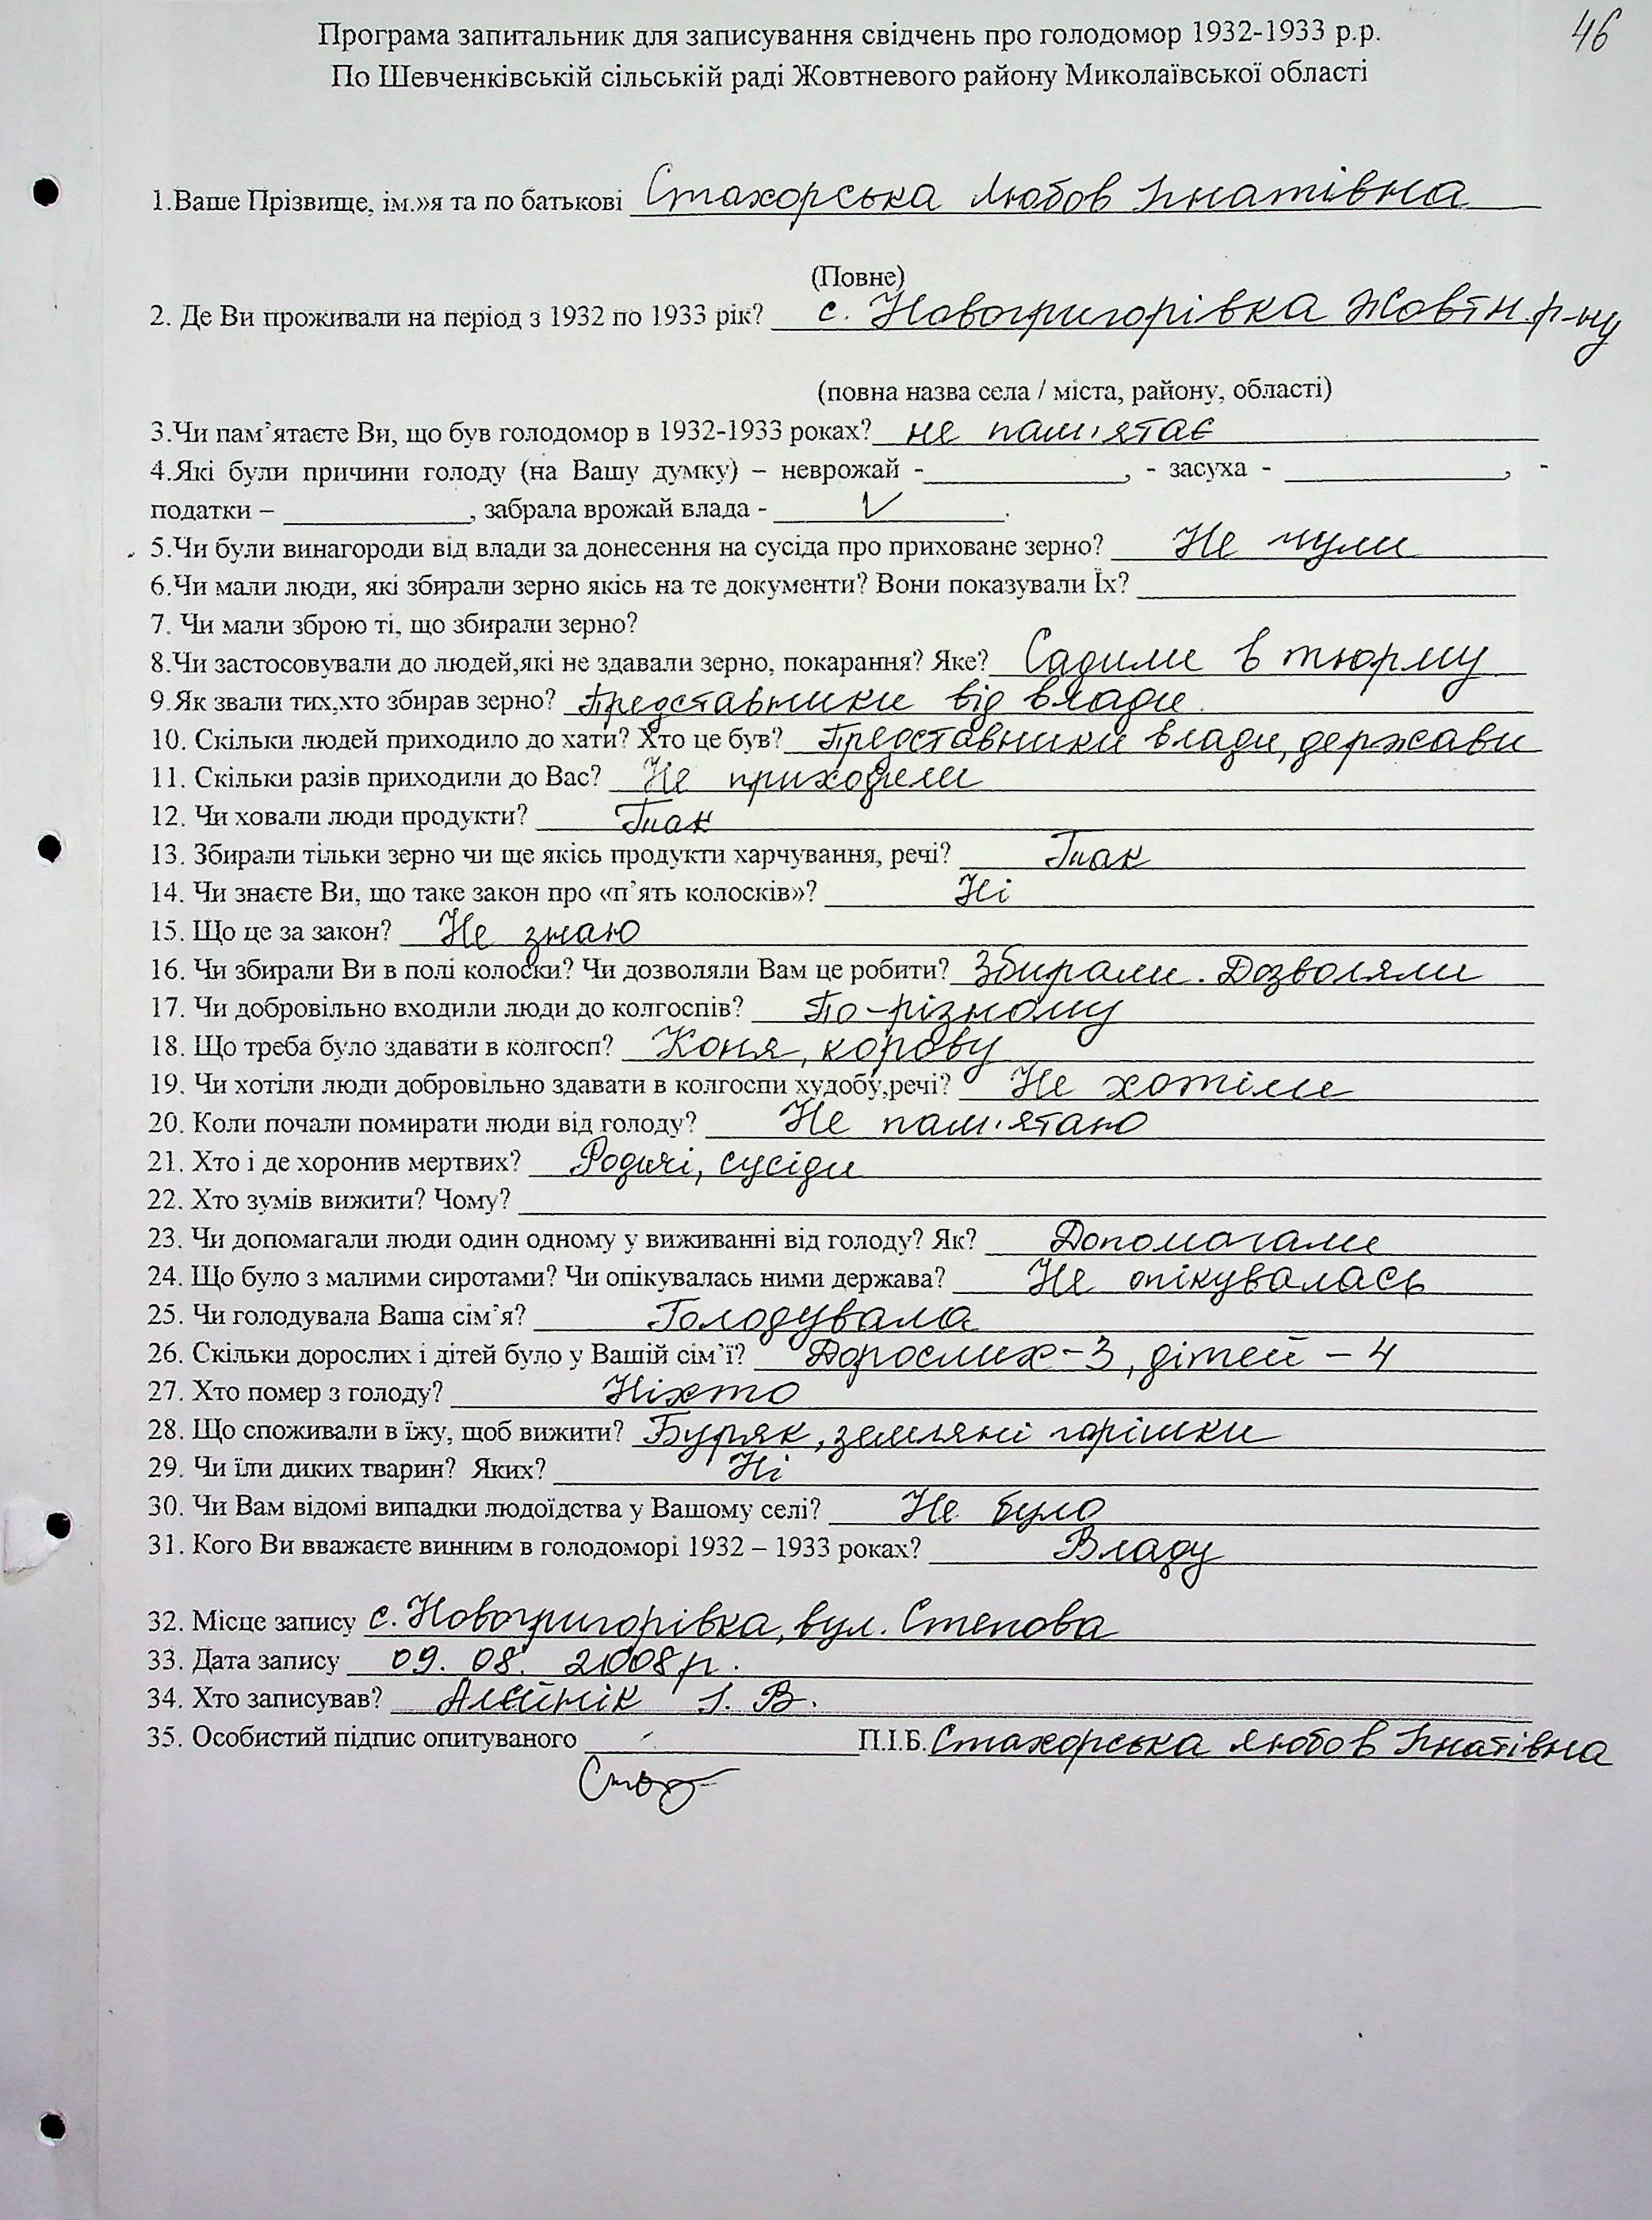 46
Програма запитальник для записування свідчень про голодомор 1932-1933 р.р.
По Шевченківській сільській раді Жовтневого району Миколаївської області
1.Ваше Прізвище, ім.»я та по батькові Стахорська Любов Ігнатівна
(Повне)
2. Де Ви проживали на період з 1932 по 1933 рік? с. Новогригорівка Жовтн. р-ну
(повна назва села / міста, району, області)
3.Чи пам’ятаєте Ви, що був голодомор в 1932-1933 роках? не пам'ятає
4.Які були причини голоду (на Вашу думку) – неврожай -____________, - засуха - ____________, -
податки – ____________, забрала врожай влада - V.
5.Чи були винагороди від влади за донесення на сусіда про приховане зерно? Не чули
6.Чи мали люди, які збирали зерно якісь на те документи? Вони показували Їх? ____________
7. Чи мали зброю ті, що збирали зерно?
8.Чи застосовували до людей,які не здавали зерно, покарання? Яке? Садили в тюрму
9.Як звали тих,хто збирав зерно? Представники від влади.
10. Скільки людей приходило до хати? Хто це був? Представники влади, держави
11. Скільки разів приходили до Вас? Не приходили
12. Чи ховали люди продукти? Так
13. Збирали тільки зерно чи ще якісь продукти харчування, речі? Так
14. Чи знаєте Ви, що таке закон про «п’ять колосків»? Ні
15. Що це за закон? Не знаю
16. Чи збирали Ви в полі колоски? Чи дозволяли Вам це робити? Збирали. Дозволяли
17. Чи добровільно входили люди до колгоспів? По-різному
18. Що треба було здавати в колгосп? Коня, корову
19. Чи хотіли люди добровільно здавати в колгоспи худобу,речі? Не хотіли
20. Коли почали помирати люди від голоду? Не пам'ятаю
21. Хто і де хоронив мертвих? Родичі, сусіди
22. Хто зумів вижити? Чому? ____________
23. Чи допомагали люди один одному у виживанні від голоду? Як? Допомагали
24. Що було з малими сиротами? Чи опікувалась ними держава? Не опікувалась
25. Чи голодувала Ваша сім’я? Голодувала
26. Скільки дорослих і дітей було у Вашій сім’ї? Дорослих-3, дітей – 4
27. Хто помер з голоду? Ніхто
28. Що споживали в їжу, щоб вижити? Буряк, земляні горішки
29. Чи їли диких тварин? Яких? Ні
30. Чи Вам відомі випадки людоїдства у Вашому селі? Не було
31. Кого Ви вважаєте винним в голодоморі 1932 – 1933 роках? Владу
32. Місце запису с. Новогригорівка, вул. Степова
33. Дата запису 09. 08. 2008р.
34. Хто записував? Алєйнік І. В.
35. Особистий підпис опитуваного ____________ П.І.Б. Стахорська Любов Ігнатівна